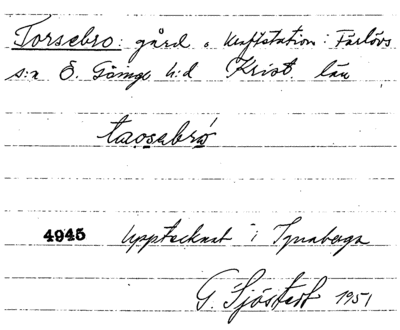 Torsebro: gård o kraftstation i Färlövs
s:n Ö. Göinge h:d Krist. län
taosebró
4945 Upptecknat i Ignaberga
G. Sjöstedt 1951